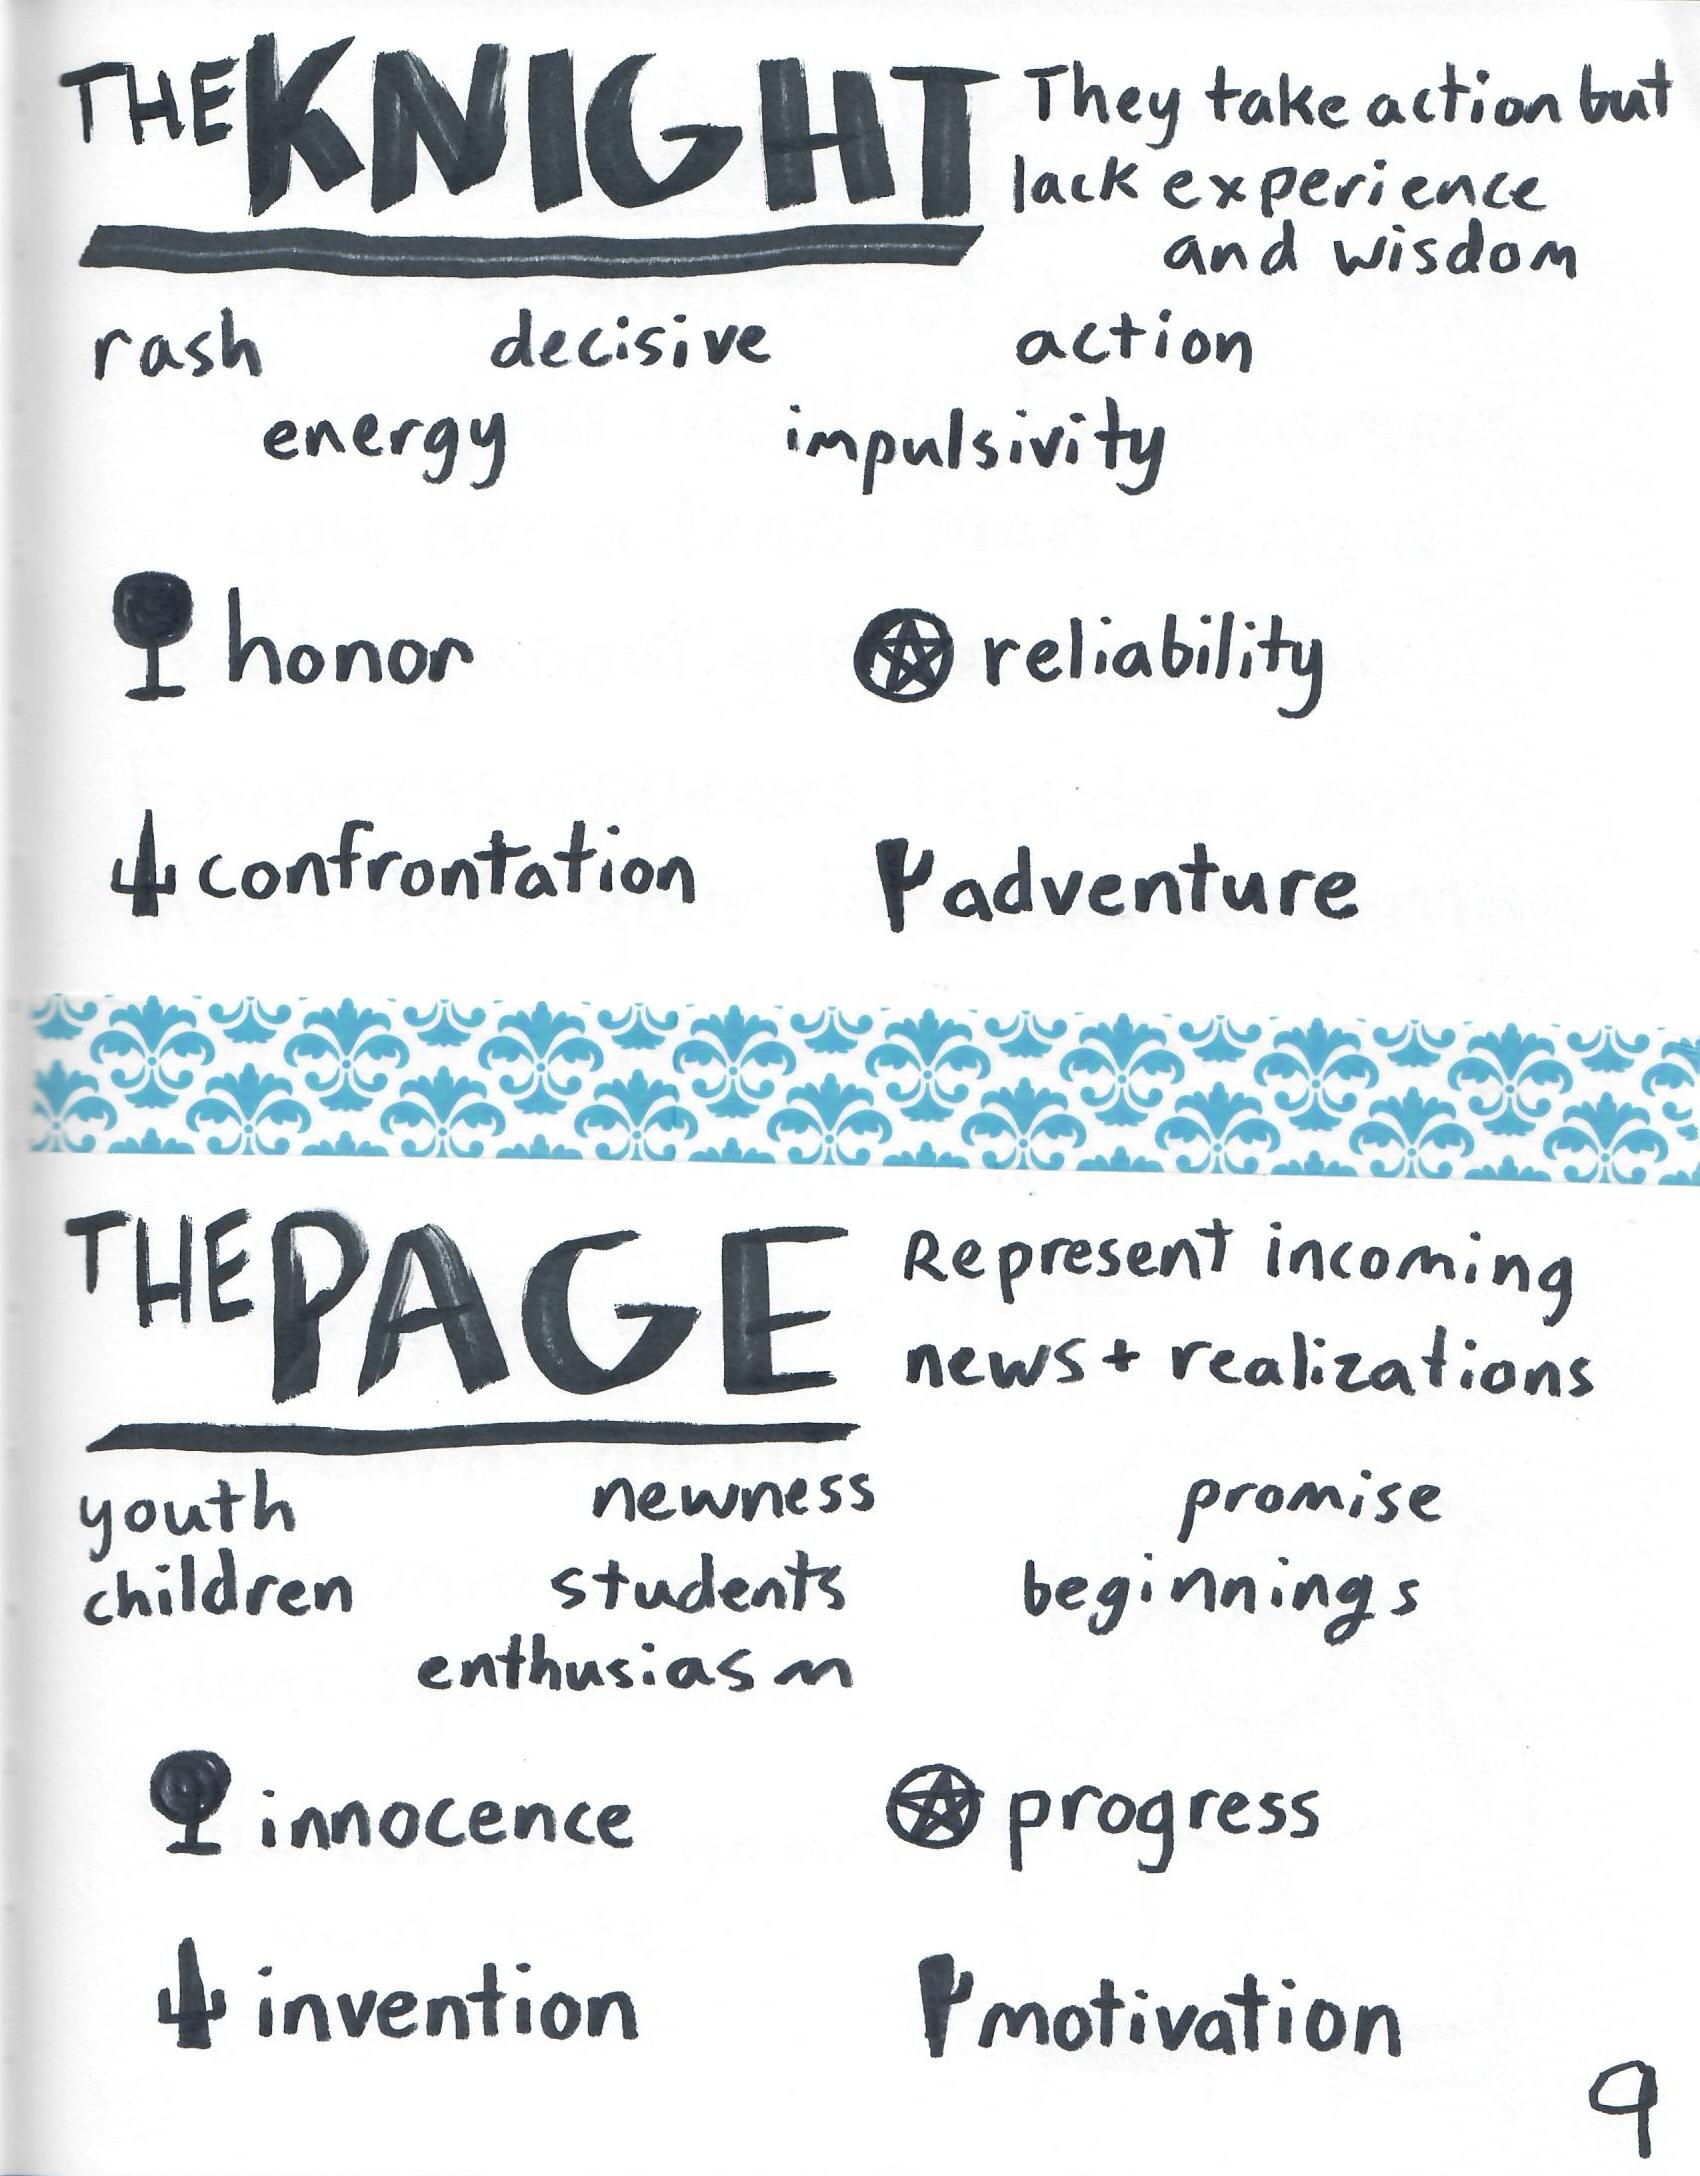 THE KNIGHT
They take action but
lack experience
and wisdom
rash decisive action
energy impulsivity
honor reliability
confrontation adventure
THE PAGE
Represent incoming
news + realizations
youth newness promise
children students beginnings
enthusiasm
innocence progress
invention motivation
9